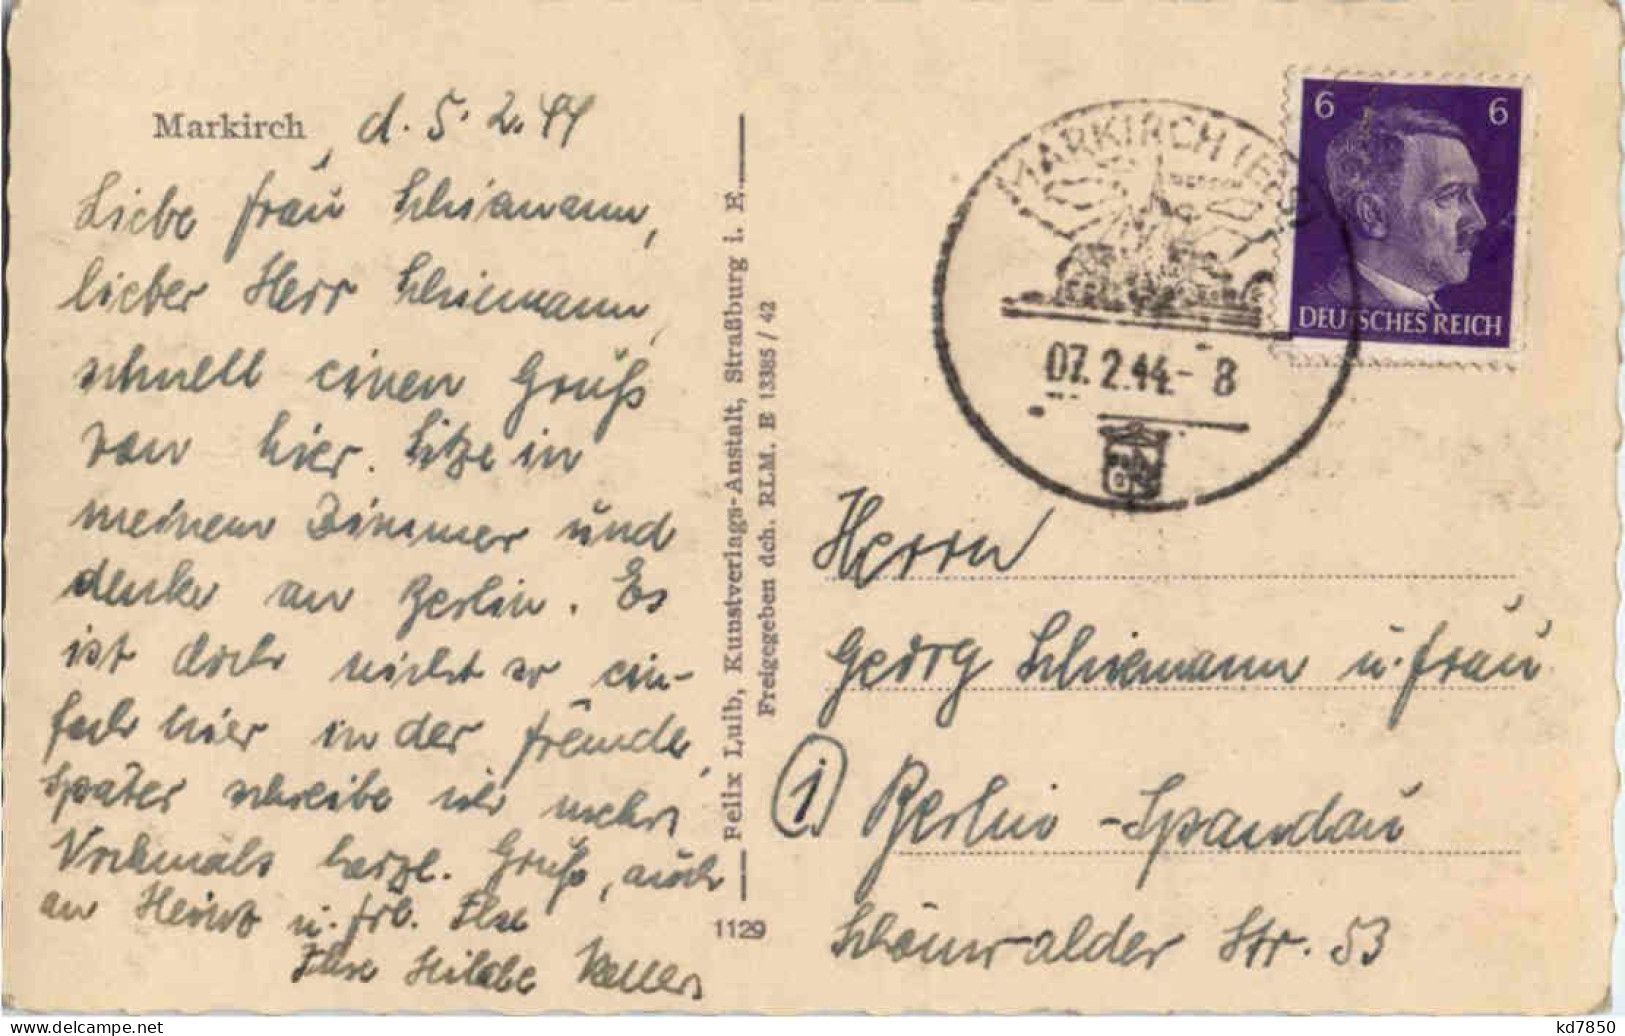 Markirch, d. 5.2.44
Liebe Frau Schiemann,
lieber Herr Schiemann,
schnell einen Gruß
von hier. Sitze in
meinem Zimmer und
denke an Berlin. Es
ist doch nicht so ein-
fach hier in der Fremde,
später schreibe ich mehr.
Nochmals herzl. Gruß, auch
an Heinz u. Frl. Ilse
Ihre Hilde
Felix Luib, Kunstverlags-Anstalt, Straßburg i. E.
Freigegeben dch. RLM. E 13385/42
1129
MARKIRCH (ELS)
07.2.44.- 8
6 6
DEUTSCHES REICH
Herrn
Georg Schiemann u. Frau
(1) Berlin-Spandau
Schönwalder Str. 53
kd7850